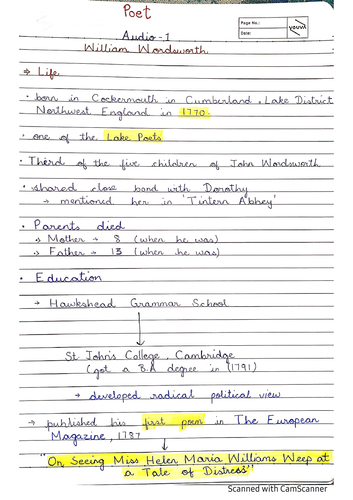 Poet
Page No.:
Date:
youva
Audio - 1
William Wordsworth
⇒ Life
• born in Cockermouth in Cumberland, Lake District
Northwest England in 1770.
• one of the Lake Poets
• Third of the five children of John Wordsworth
• shared close bond with Dorothy
→ mentioned her in 'Tintern Abbey'
• Parents died
→ Mother → 8 (when he was)
→ Father → 13 (when he was)
• Education
→ Hawkshead Grammar School
St. John's College, Cambridge
(got a B.A degree in (1791)
→ developed radical political view
→ published his first poem in The European
Magazine, 1787
"On Seeing Miss Helen Maria Williams Weep at
a Tale of Distress"
Scanned with CamScanner